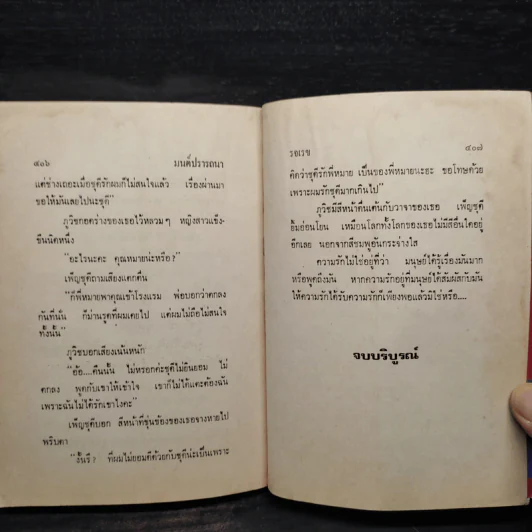 ๔๐๖ มนต์ปรารถนา
แต่ช่างเถอะเมื่อชุติรักผมก็ไม่สนใจแล้ว เรื่องผ่านมา
ขอให้มันเลยไปนะชุติ"
ภูวิชกอดร่างของเธอไว้หลวมๆ หญิงสาวแข็ง-
ขืนนิดหนึ่ง
"อะไรนะคะ คุณหมายน่ะหรือ?"
เพ็ญชุติถามเสียงแตกตื่น
"ก็พี่หมายพาคุณเข้าโรงแรม พ่อบอกว่าตกลง
กันที่นั่น ก็ม่านรูดที่ผมเคยไป แต่ผมไม่ถือไม่สนใจ
ทั้งนั้น"
ภูวิชบอกเสียงเน้นหนัก
"อ้อ....คืนนั้น ไม่หรอกค่ะชุติไม่ยินยอม ไม่
ตกลง พูดกับเขาให้เข้าใจ เขาก็ไม่ได้แตะต้องฉัน
เพราะฉันไม่ได้รักเขาไงคะ"
เพ็ญชุติบอก สีหน้าที่ขุ่นข้องของเธอจางหายไป
พริบตา
"งั้นรึ? ที่ผมไม่ยอมดีด้วยกับชุติน่ะเป็นเพราะ
รอเรข ๔๐๗
คิดว่าชุติรักพี่หมาย เป็นของพี่หมายนะฮะ ขอโทษด้วย
เพราะผมรักชุติมากเกินไป"
ภูวิชมีสีหน้าตื่นเต้นกับวาจาของเธอ เพ็ญชุติ
ยิ้มอ่อนโยน เหมือนโลกทั้งโลกของเธอไม่มีสีอื่นใดอยู่
อีกเลย นอกจากสีชมพูอันกระจ่างใส
ความรักไม่ใช่อยู่ที่ว่า มนุษย์ได้รู้เรื่องมันมาก
หรือพูดถึงมัน หากความรักอยู่ที่มนุษย์ได้สัมผัสกับมัน
ให้ความรักได้รับความรักก็เพียงพอแล้วมิใช่หรือ....
จบบริบูรณ์